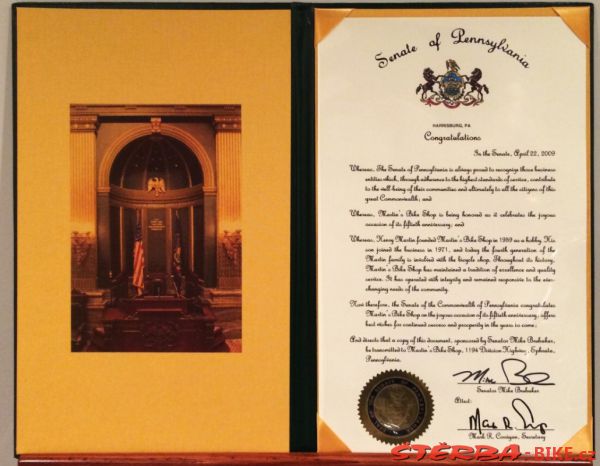 Senate of Pennsylvania
HARRISBURG, PA
Congratulations
In the Senate, April 22, 2009
Whereas, The Senate of Pennsylvania is always proud to recognize those business
entities which, through adherence to the highest standards of service, contribute
to the well-being of their communities and ultimately to all the citizens of this
great Commonwealth; and
Whereas, Martin's Bike Shop is being honored as it celebrates the joyous
occasion of its fiftieth anniversary; and
Whereas, Henry Martin founded Martin's Bike Shop in 1959 as a hobby. His
son joined the business in 1971, and today the fourth generation of the
Martin family is involved with the bicycle shop. Throughout its history,
Martin's Bike Shop has maintained a tradition of excellence and quality
service. It has operated with integrity and remained responsive to the ever-
changing needs of the community.
Now therefore, the Senate of the Commonwealth of Pennsylvania congratulates
Martin's Bike Shop on the joyous occasion of its fiftieth anniversary; offers
best wishes for continued success and prosperity in the years to come;
And directs that a copy of this document, sponsored by Senator Mike Brubaker,
be transmitted to Martin's Bike Shop, 1194 Division Highway, Ephrata,
Pennsylvania.
Senator Mike Brubaker
Attest:
Mark R. Corrigan, Secretary
ŠTĚRBA-BIKE.cz